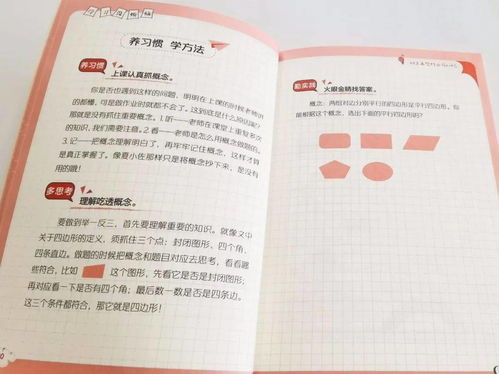 养习惯 学方法
养习惯 上课认真抓概念。
你是否也遇到这样的问题，明明在上课的时候老师讲
的都懂，可是做作业时就都不会了。这到底是什么原因呢？
那就是没有抓住重要概念。1.听——老师在课堂上重复多次
的知识，我们需要注意。2.看——老师是怎么用概念做题的。
3.记——把概念理解明白了，再牢牢记住概念，这样才算
是真正掌握了。像夏小佐那样只是将概念抄下来，是没有
用的哦！
多思考 理解吃透概念。
要做到举一反三，首先要理解重要的知识。就像又中
关于四边形的定义，须抓住三个点：封闭图形、四个角、
四条直边。做题的时候把概念和题目对应去思考，看看题
些符合，比如 这个图形，先看它是否是封闭图形；
再对应看一下是否有四个角；最后数一数是否是四条边。
这三个条件都符合，那它就是四边形！
勤实践 火眼金睛找答案。
概念：两组对边分别平行的四边形是平行四边形。你
能根据这个概念，选出下面的平行四边形吗？